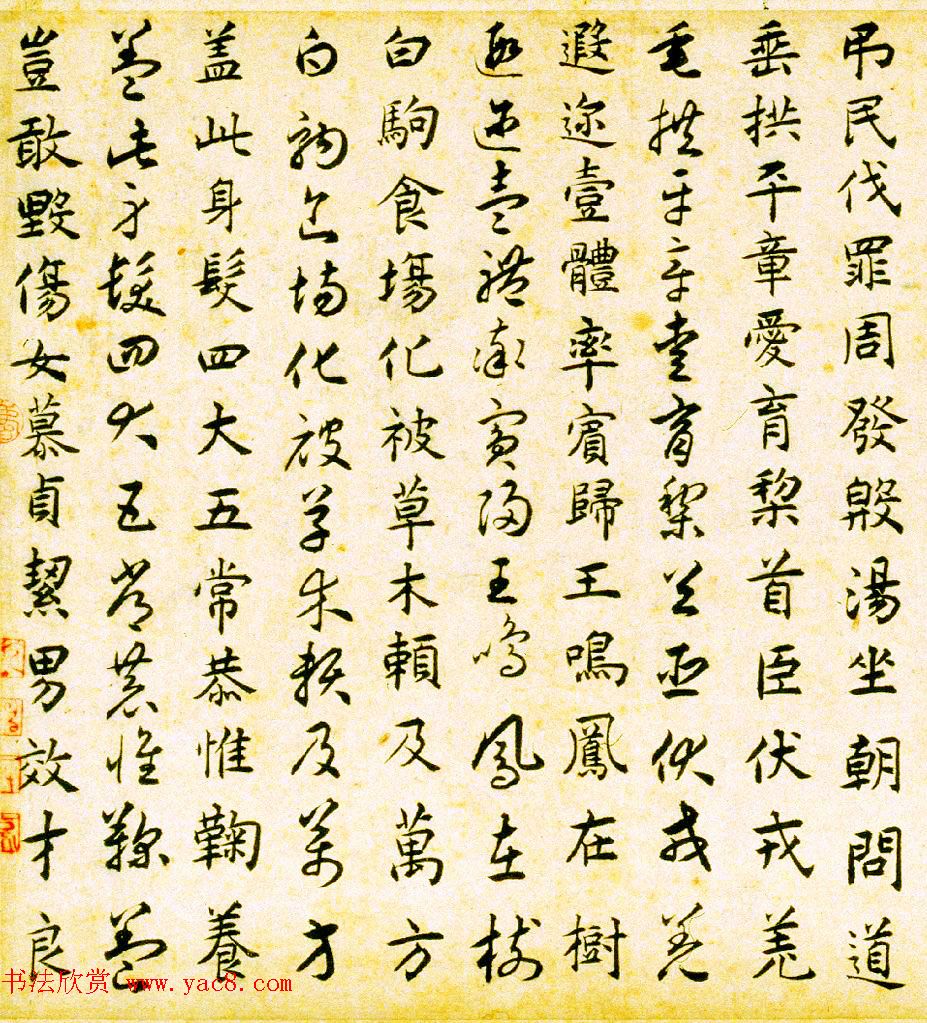 吊民伐罪周發殷湯坐朝問道
垂拱平章愛育黎首臣伏戎羌
垂拱平章愛育黎首臣伏戎羌
遐迩壹體率賓歸王鳴鳳在樹
遐迩壹體率賓歸王鳴鳳在樹
白駒食場化被草木賴及萬方
白駒食場化被草木賴及萬方
盖此身髮四大五常恭惟鞠養
盖此身髮四大五常恭惟鞠養
豈敢毀傷女慕貞絜男效才良
书法欣赏 www.yac8.com